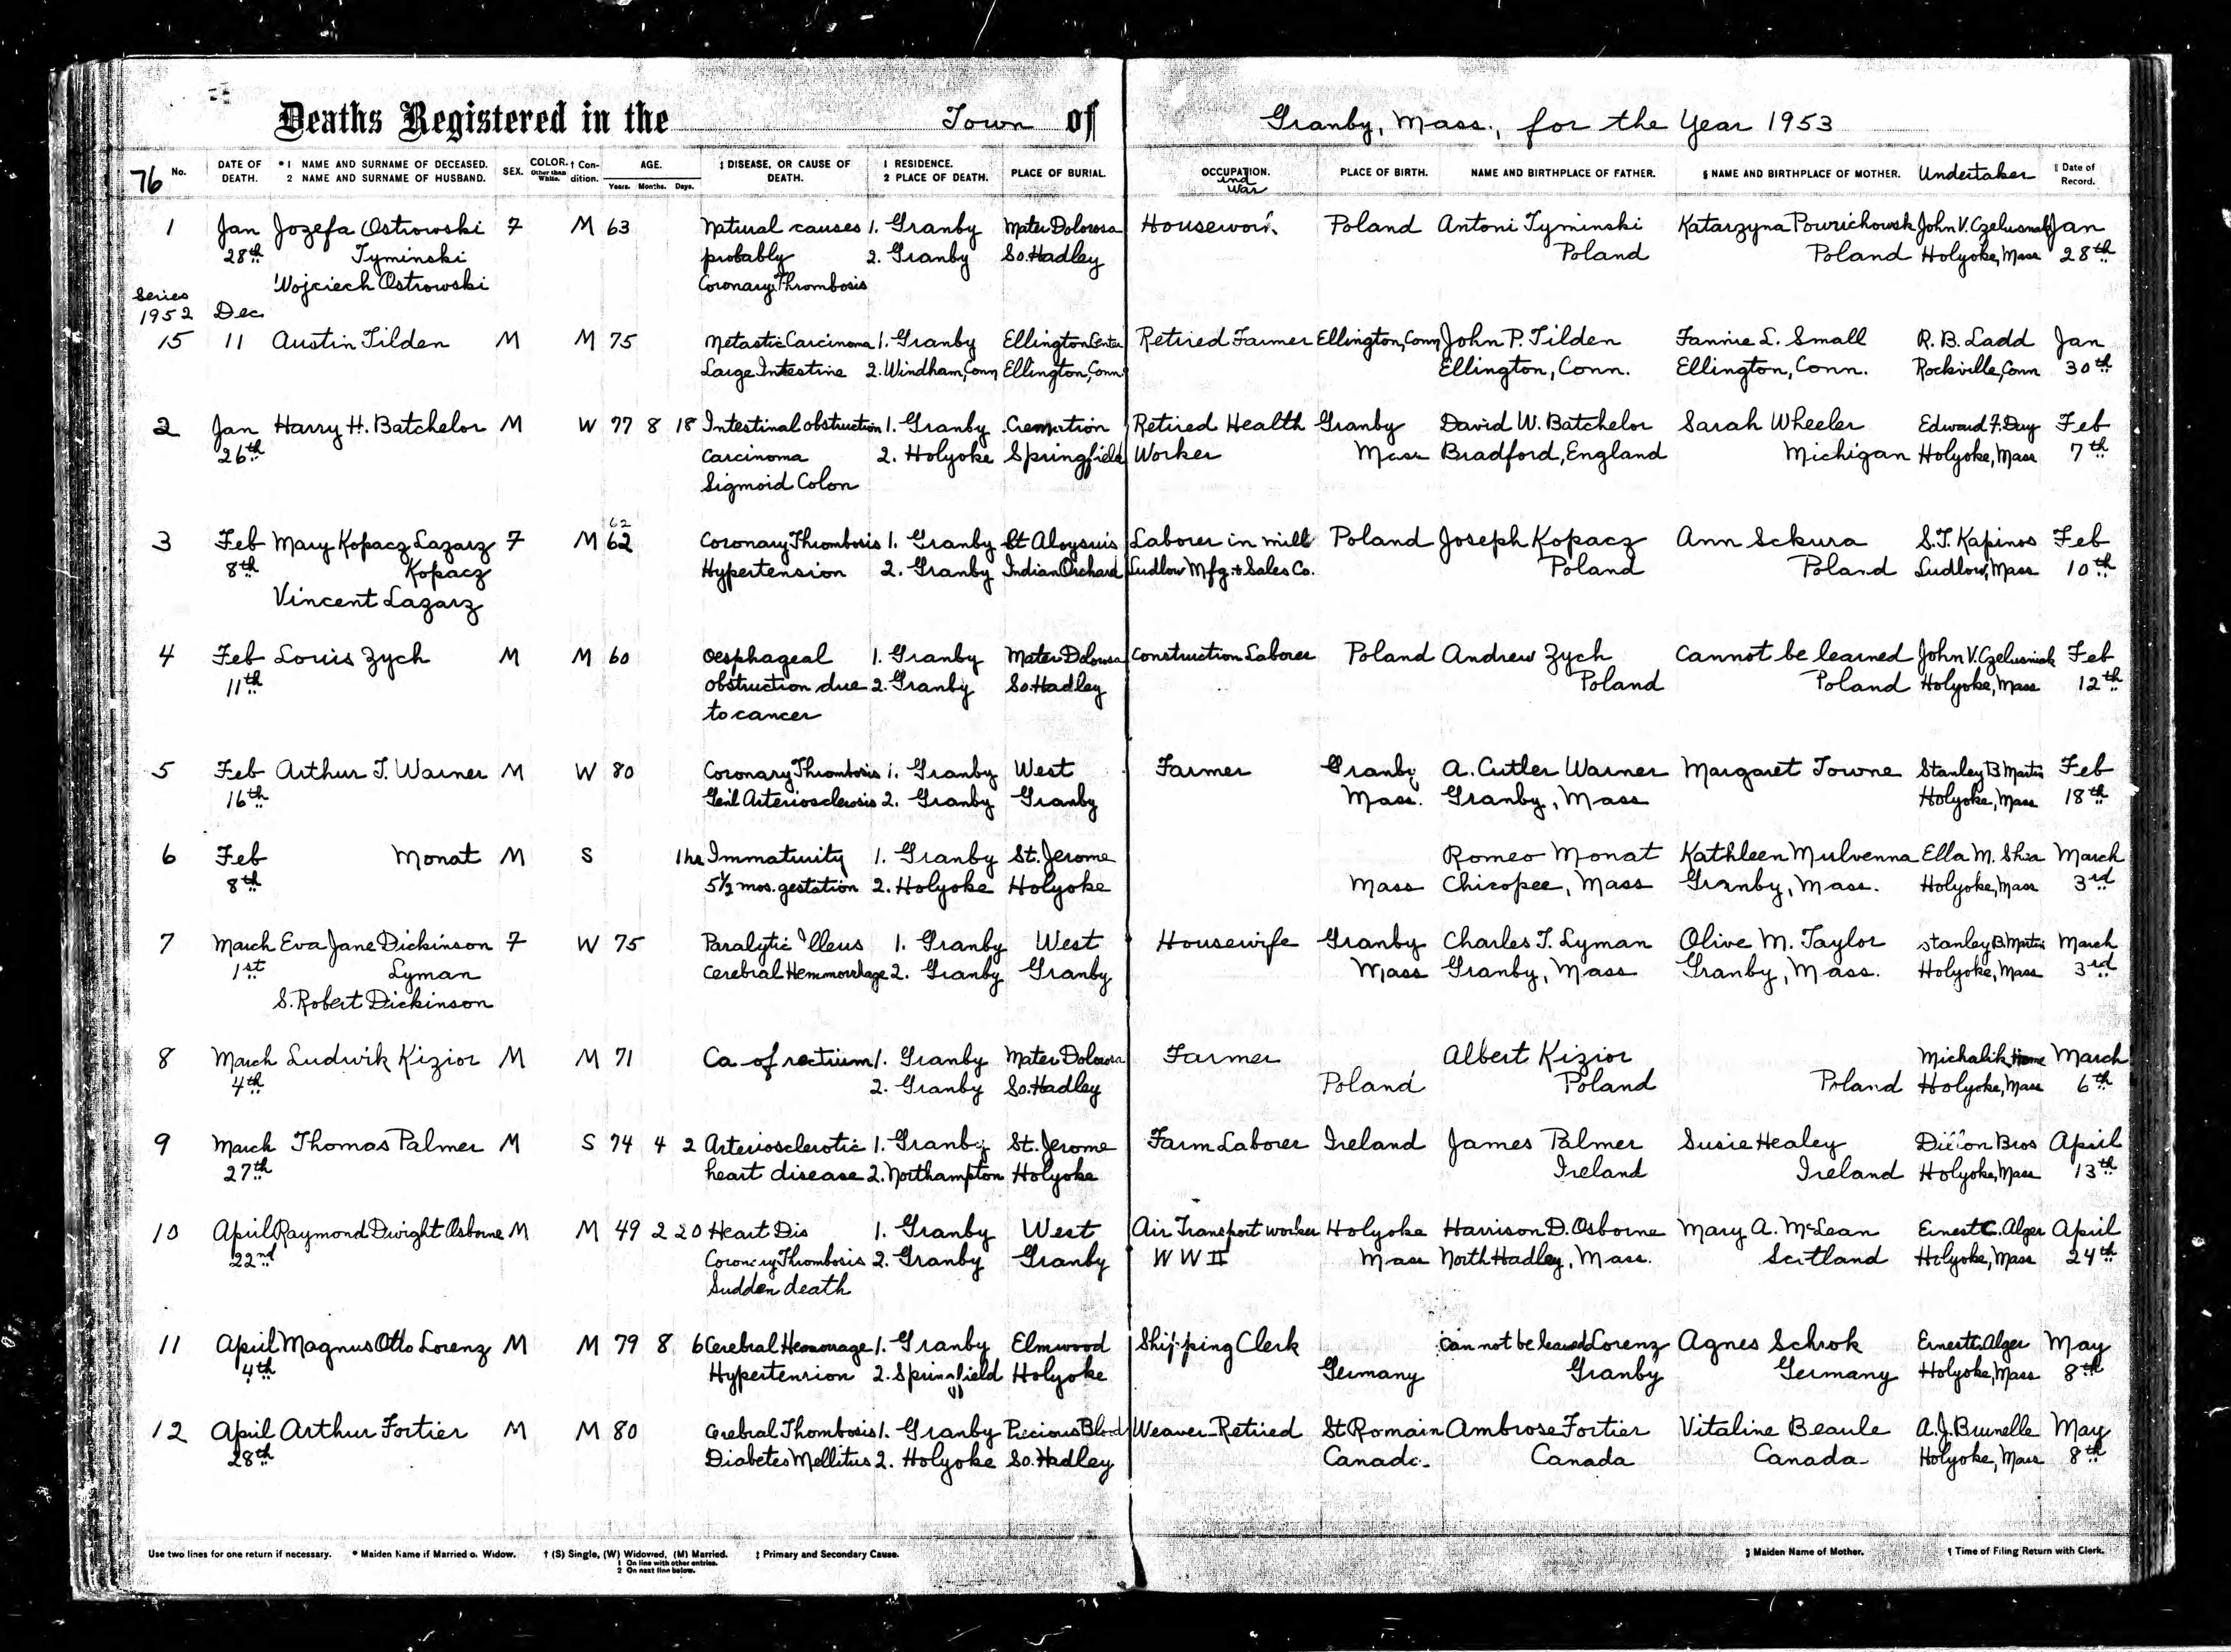 Deaths Registered in the Town of Granby, Mass., for the Year 1953
76 No. DATE OF DEATH. *1 NAME AND SURNAME OF DECEASED. 2 NAME AND SURNAME OF HUSBAND. SEX. COLOR. Other than White. † Condition. AGE. Years. Months. Days. ‡ DISEASE, OR CAUSE OF DEATH. 1 RESIDENCE. 2 PLACE OF DEATH. PLACE OF BURIAL. OCCUPATION. and War PLACE OF BIRTH. NAME AND BIRTHPLACE OF FATHER. § NAME AND BIRTHPLACE OF MOTHER. Undertaker ¶ Date of Record.
1 Jan Jozefa Ostrowski F M 63 Natural causes 1. Granby Mater Dolorosa Housework Poland Antoni Tyminski Katarzyna Powrichowsk John V. Czelusniak Jan
28th Tyminski probably 2. Granby So. Hadley Poland Poland Holyoke, Mass 28th
Wojciech Ostrowski Coronary Thrombosis
Series
1952 Dec.
15 11 Austin Tilden M M 75 Metastic Carcinoma 1. Granby Ellington Center Retired Farmer Ellington, Conn John P. Tilden Fannie L. Small R. B. Ladd Jan
Large Intestine 2. Windham, Conn Ellington, Conn Ellington, Conn. Ellington, Conn. Rockville, Conn 30th
2 Jan Harry H. Batchelor M W 77 8 18 Intestinal obstruction 1. Granby Cremation Retired Health Granby David W. Batchelor Sarah Wheeler Edward F. Day Feb
26th Carcinoma 2. Holyoke Springfield Worker Mass Bradford, England Michigan Holyoke, Mass 7th
Sigmoid Colon
62
3 Feb Mary Kopacz Lazarz F M 62 Coronary Thrombosis 1. Granby St Aloysuis Laborer in mill Poland Joseph Kopacz Ann Sckura S. T. Kapinos Feb
8th Kopacz Hypertension 2. Granby Indian Orchard Ludlow Mfg. & Sales Co. Poland Poland Ludlow, Mass 10th
Vincent Lazarz
4 Feb Louis Zych M M 60 Oesphageal 1. Granby Mater Dolorosa Construction Laborer Poland Andrew Zych Cannot be learned John V. Czelusniak Feb
11th obstruction due 2. Granby So. Hadley Poland Poland Holyoke, Mass 12th
to cancer
5 Feb Arthur T. Warner M W 80 Coronary Thrombosis 1. Granby West Farmer Granby A. Cutler Warner Margaret Towne Stanley B Martin Feb
16th Gen'l Arteriosclerosis 2. Granby Granby Mass. Granby, Mass Holyoke, Mass 18th
6 Feb Monat M S 1 hr Immaturity 1. Granby St. Jerome Romeo Monat Kathleen Mulvenna Ella M. Shea March
8th 5½ mos. gestation 2. Holyoke Holyoke Mass Chicopee, Mass Granby, Mass. Holyoke, Mass 3rd
7 March Eva Jane Dickinson F W 75 Paralytic Ileus 1. Granby West Housewife Granby Charles T. Lyman Olive M. Taylor Stanley B. Martin March
1st Lyman Cerebral Hemmorrhage 2. Granby Granby Mass Granby, Mass Granby, Mass. Holyoke, Mass 3rd
S. Robert Dickinson
8 March Ludwik Kizior M M 71 Ca of rectium 1. Granby Mater Dolorosa Farmer Albert Kizior Michalik Home March
4th 2. Granby So. Hadley Poland Poland Poland Holyoke, Mass 6th
9 March Thomas Palmer M S 74 4 2 Arteriosclerotic 1. Granby St. Jerome Farm Laborer Ireland James Palmer Susie Healey Dillon Bros April
27th heart disease 2. Northampton Holyoke Ireland Ireland Holyoke, Mass 13th
10 April Raymond Dwight Osborne M M 49 2 20 Heart Dis 1. Granby West Air Transport worker Holyoke Harrison D. Osborne Mary A. McLean Ernest C. Alger April
22nd Coronary Thrombosis 2. Granby Granby W W II Mass North Hadley, Mass. Scotland Holyoke, Mass 24th
Sudden death
11 April Magnus Otto Lorenz M M 79 8 6 Cerebral Hemorrage 1. Granby Elmwood Shipping Clerk Can not be learned Lorenz Agnes Schrok Ernest C. Alger May
4th Hypertension 2. Springfield Holyoke Germany Granby Germany Holyoke, Mass 8th
12 April Arthur Fortier M M 80 Cerebral Thombosis 1. Granby Precious Blood Weaver-Retired St Romain Ambrose Fortier Vitaline Beaule A. J. Brunelle May
28th Diabetes Mellitus 2. Holyoke So. Hadley Canada Canada Canada Holyoke, Mass 8th
Use two lines for one return if necessary. * Maiden Name if Married or Widow. † (S) Single, (W) Widowed, (M) Married. ‡ Primary and Secondary Cause. § Maiden Name of Mother. ¶ Time of Filing Return with Clerk.
1 On line with other entries.
2 On next line below.